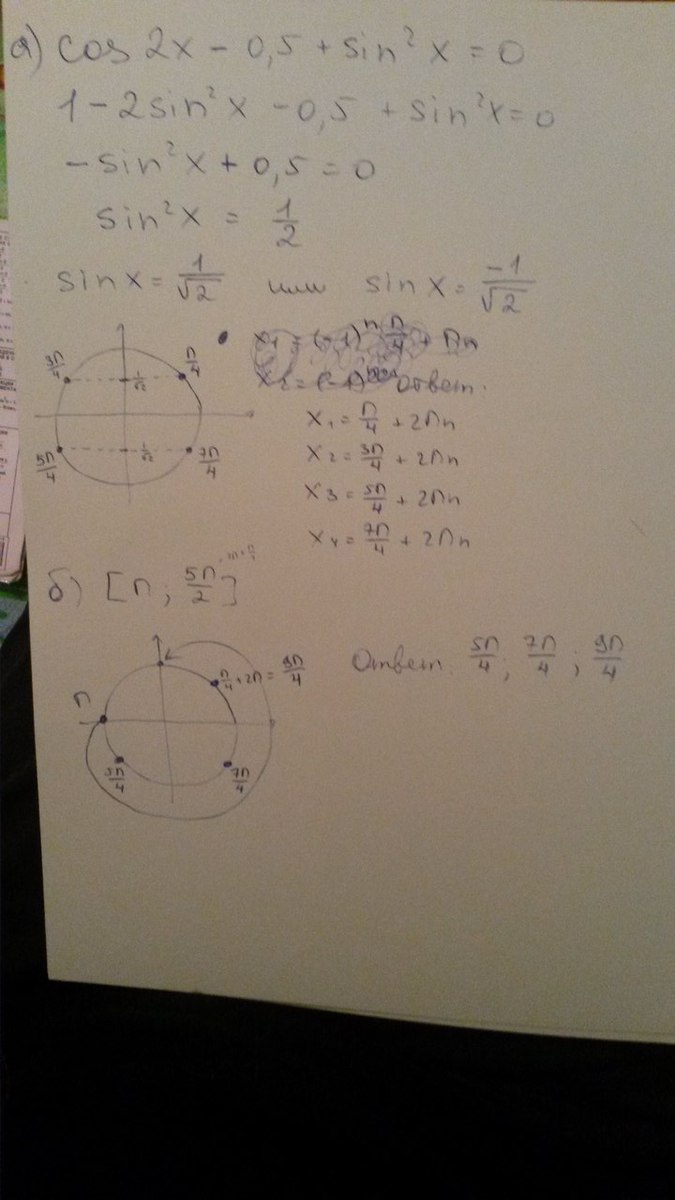 а) cos 2x - 0,5 + sin² x = 0
1 - 2sin² x - 0,5 + sin² x = 0
- sin² x + 0,5 = 0
sin² x = 1/2
sin x = 1/√2 или sin x = -1/√2
3π/4 π/4
1/√2
1/√2
5π/4 7π/4
x₁ = (-1)ⁿ π/4 + πn
x₂ = (-1) Ответ.
x₁ = π/4 + 2πn
x₂ = 3π/4 + 2πn
x₃ = 5π/4 + 2πn
x₄ = 7π/4 + 2πn
б) [π ; 5π/2]
π
π/4 + 2π = 9π/4
5π/4 7π/4
Ответ. 5π/4 ; 7π/4 ; 9π/4